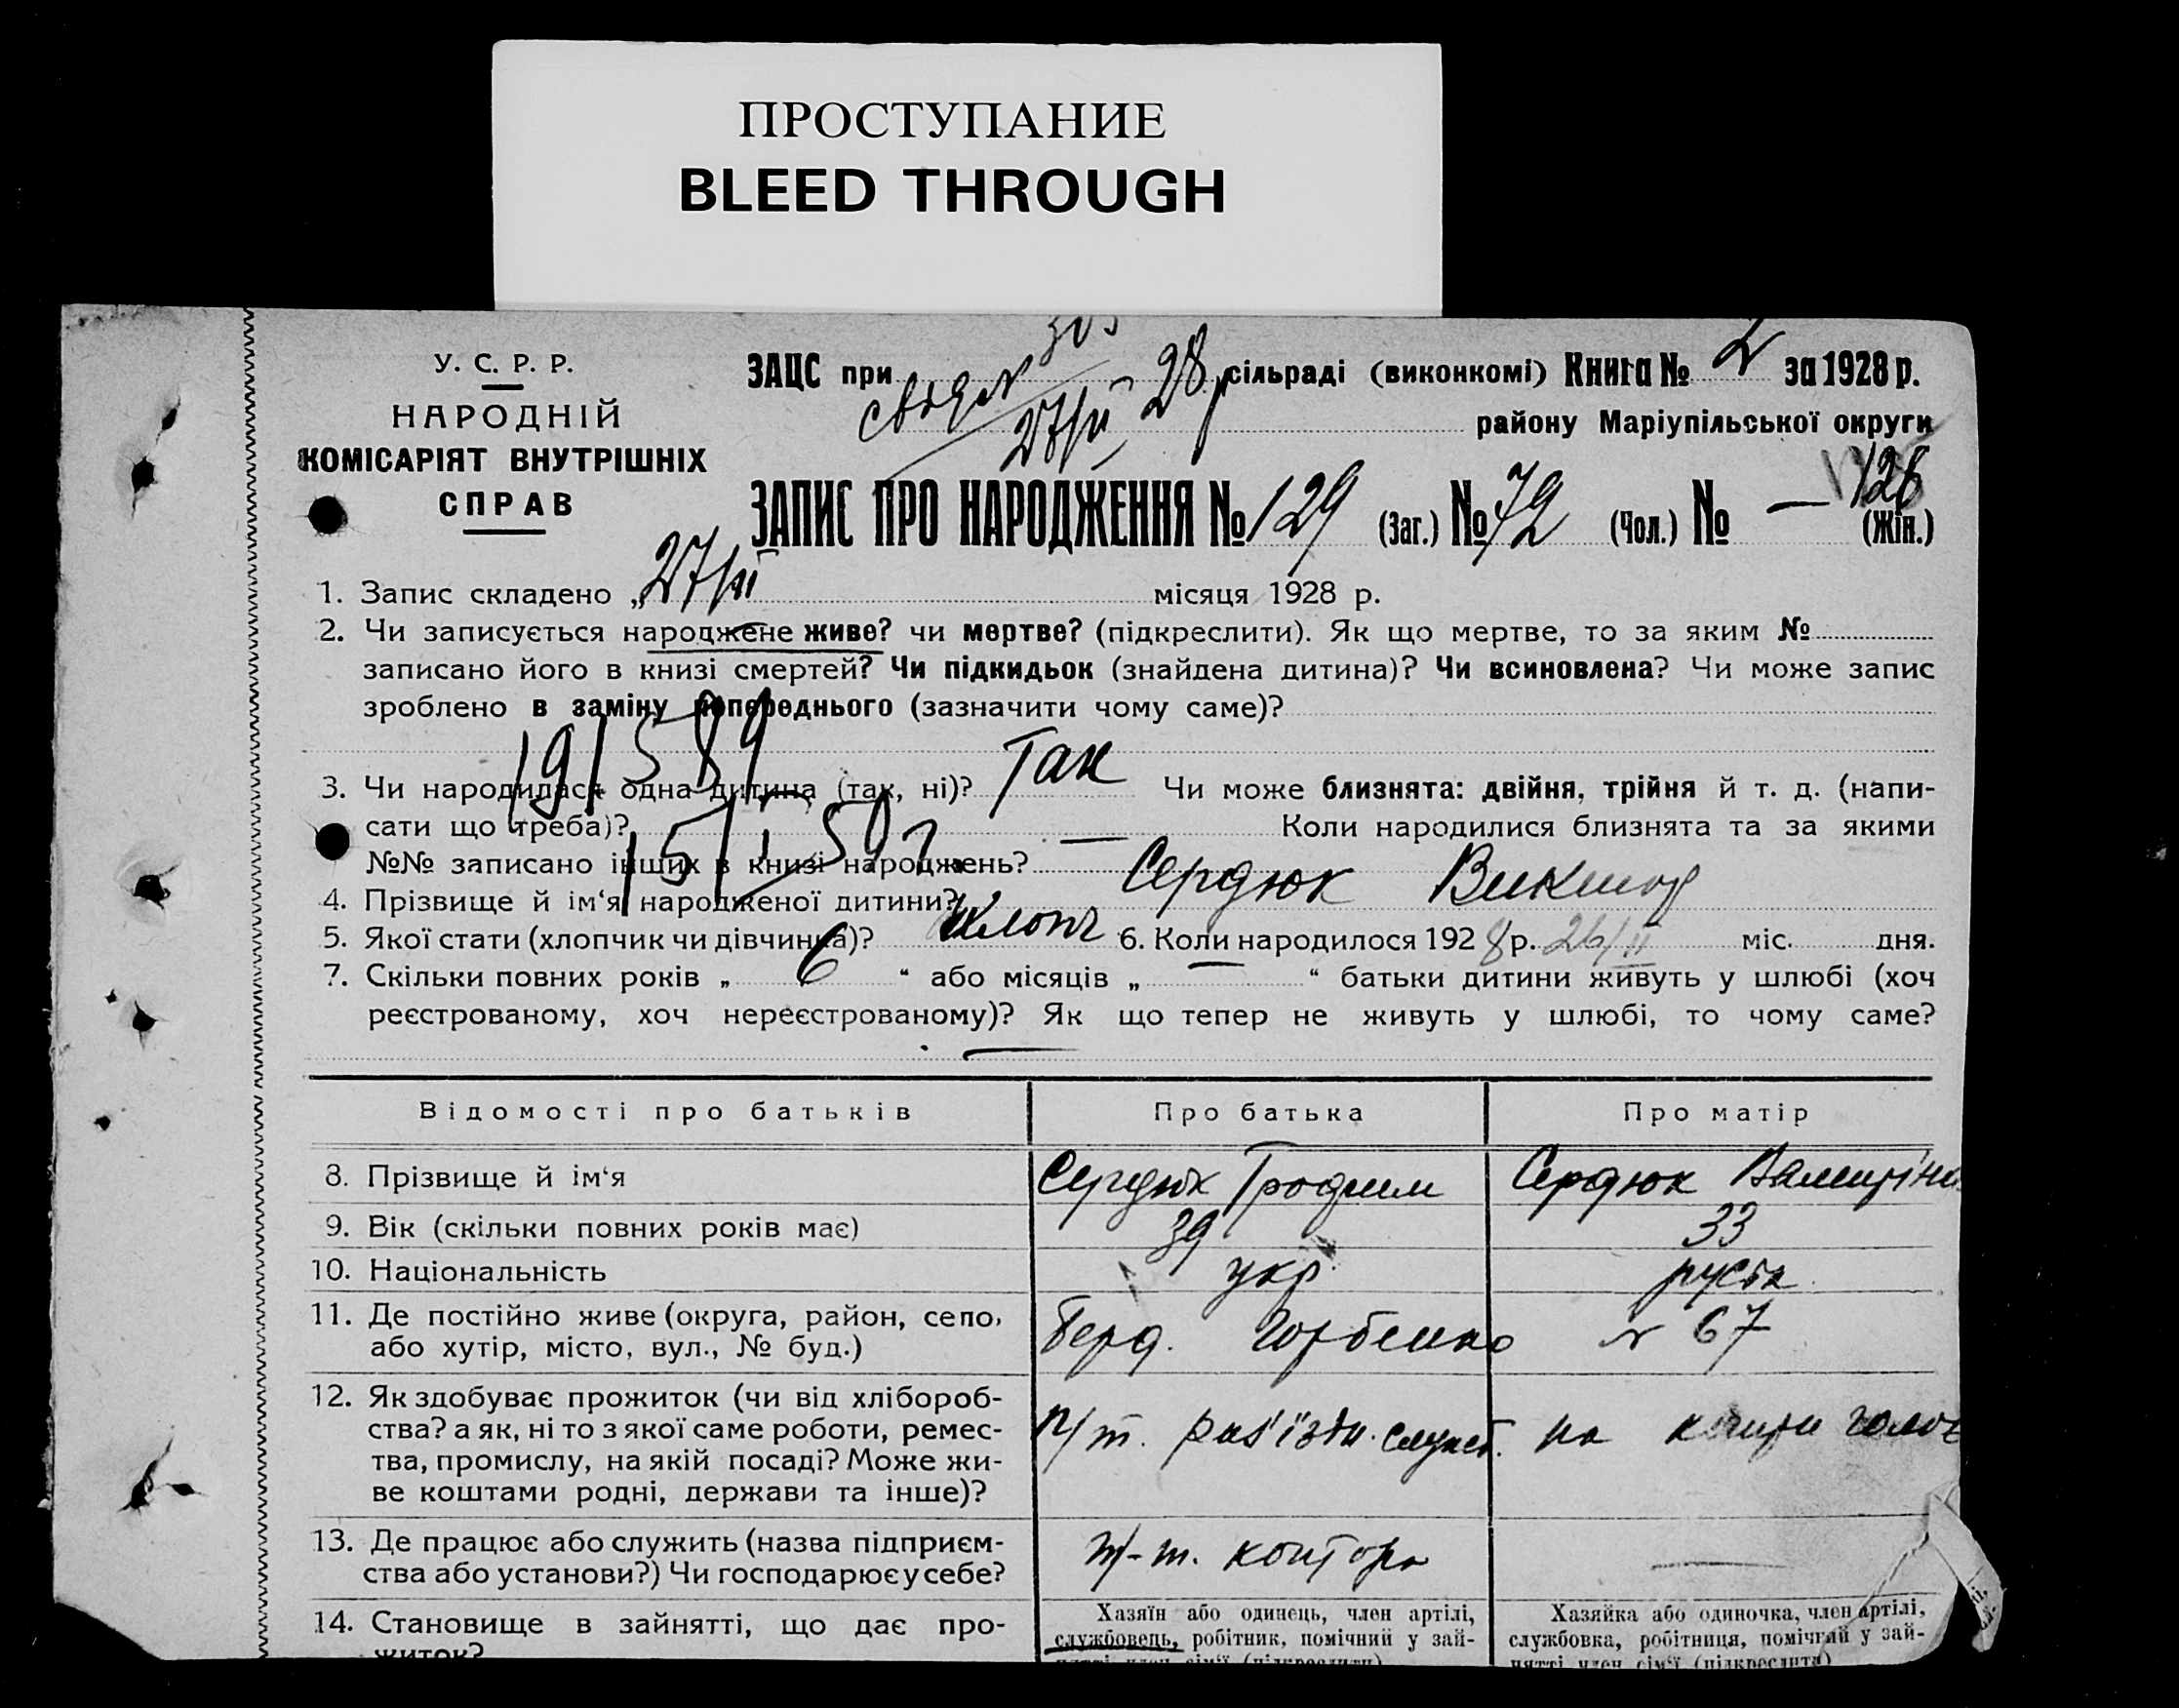 ПРОСТУПАНИЕ
BLEED THROUGH
У. С. Р. Р.
НАРОДНІЙ
КОМІСАРІЯТ ВНУТРІШНІХ
СПРАВ
ЗАЦС при сільраді (виконкомі) Книга № 2 за 1928 р.
28 р
27/ІІ
району Маріупільської округи
126
ЗАПИС ПРО НАРОДЖЕННЯ № 129 (Заг.) № 72 (Чол.) № — (Жін.)
1. Запис складено „27/ІІ місяця 1928 р.
2. Чи записується народжене живе? чи мертве? (підкреслити). Як що мертве, то за яким №
записано його в книзі смертей? Чи підкидьок (знайдена дитина)? Чи всиновлена? Чи може запис
зроблено в заміну попереднього (зазначити чому саме)?
3. Чи народилася одна дитина (так, ні)? Так Чи може близнята: двійня, трійня й т. д. (напи-
сати що треба)? — Коли народилися близнята та за якими
№№ записано інших в книзі народжень?
4. Прізвище й ім‘я народженої дитини? Сердюк Виктор
5. Якої стати (хлопчик чи дівчинка)? Хлопч 6. Коли народилося 1928 р. 26/ІІ міс. дня.
7. Скільки повних років „ 6 “ або місяців „ — “ батьки дитини живуть у шлюбі (хоч
реєстрованому, хоч нереєстрованому)? Як що тепер не живуть у шлюбі, то чому саме?
—
Відомості про батьків Про батька Про матір
8. Прізвище й ім‘я Сердюк Сердюк
9. Вік (скільки повних років має) 39 33
10. Національність укр. руска
11. Де постійно живе (округа, район, село,
або хутір, місто, вул., № буд.) Берд. Горбенко № 67
12. Як здобуває прожиток (чи від хлібороб-
ства? а як, ні то з якої саме роботи, ремес-
тва, промислу, на якій посаді? Може жи-
ве коштами родні, держави та інше)?
п/т. роз'їзди. служб. на
13. Де працює або служить (назва підприєм-
ства або установи?) Чи господарює у себе? п-т. контора —
14. Становище в зайнятті, що дає про-
житок?
Хазяїн або одинець, член артілі,
службовець, робітник, помічний у зай-
нятті член сім‘ї (підкреслити)
Хазяйка або одиночка, член артілі,
службовка, робітниця, помічний у зай-
нятті член сім‘ї (підкреслити)